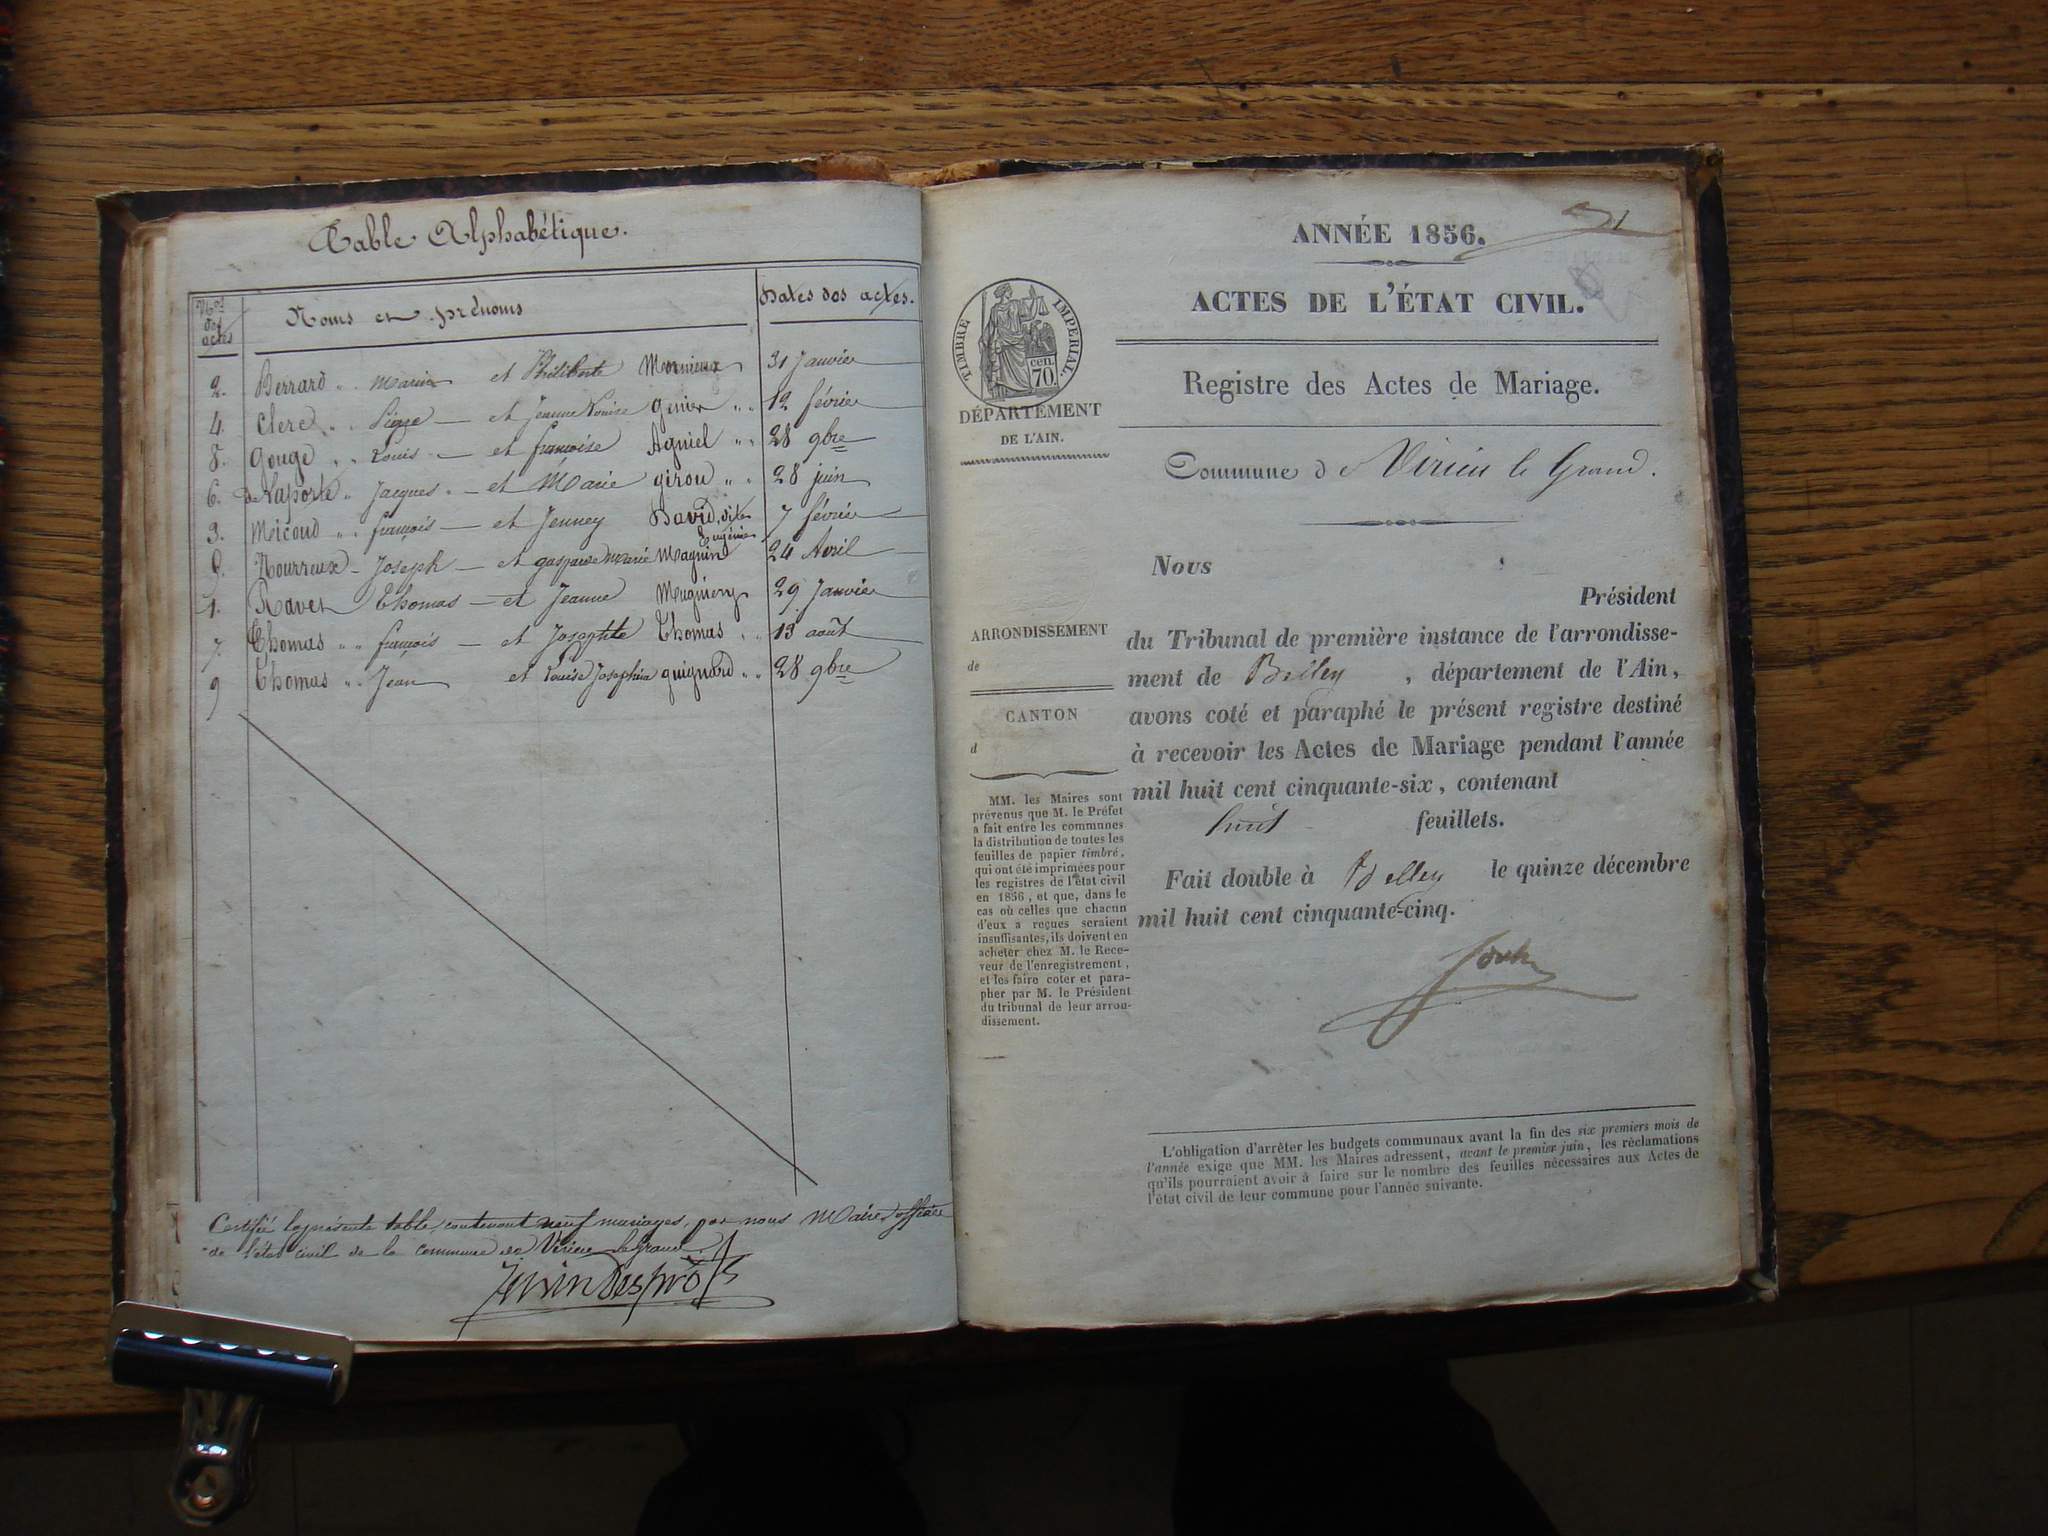 Table Alphabétique.
Nos des actes
Noms et prénoms
Dates des actes.
2. Berrard „ Marin et Philiberte Mornieux 31 Janvier
4. Clerc „ Pierre — et Jeanne Louise Genin „ 12 février
8. Gouge „ Louis — et françoise Agniel „ 28 9bre
6. de Laporte „ Jacques — et Marie girou „ 28 juin
3. Micoud „ françois — et Jenney David, dite Eugénie 7 février
5. Nourreux - Joseph — et gasparde Marie Magnin 24 Avril
1. Ravet Thomas — et Jeanne Mugniery 29 Janvier
7. Thomas „ françois — et Josephte Thomas „ 13 août
9 Thomas „ Jean et Louise Josephin guignard „ 28 9bre
Certifié la présente table, contenant neuf mariages, par nous Maire officier
de l'état civil de la commune de Virieu le Grand.
1
ANNÉE 1856.
ACTES DE L'ÉTAT CIVIL.
Registre des Actes de Mariage.
Commune de Virieu le Grand.
TIMBRE IMPERIAL.
70 cen.
DÉPARTEMENT
DE L'AIN.
ARRONDISSEMENT
de
CANTON
d
MM. les Maires sont
prévenus que M. le Préfet
a fait entre les communes
la distribution de toutes les
feuilles de papier timbré,
qui ont été imprimées pour
les registres de l'état civil
en 1856, et que, dans le
cas où celles que chacun
d'eux a reçues seraient
insuffisantes, ils doivent en
acheter chez M. le Rece-
veur de l'enregistrement,
et les faire coter et para-
pher par M. le Président
du tribunal de leur arron-
dissement.
Nous
Président
du Tribunal de première instance de l'arrondisse-
ment de Belley , département de l'Ain,
avons coté et paraphé le présent registre destiné
à recevoir les Actes de Mariage pendant l'année
mil huit cent cinquante-six, contenant
huit feuillets.
Fait double à Belley le quinze décembre
mil huit cent cinquante-cinq.
L'obligation d'arrêter les budgets communaux avant la fin des six premiers mois de
l'année exige que MM. les Maires adressent, avant le premier juin, les réclamations
qu'ils pourraient avoir à faire sur le nombre des feuilles nécessaires aux Actes de
l'état civil de leur commune pour l'année suivante.